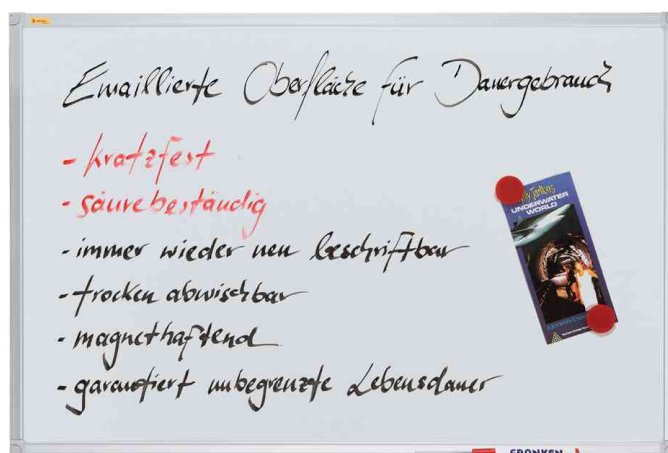 Emaillierte Oberfläche für Dauergebrauch
- kratzfest
- säurebeständig
- immer wieder neu beschriftbar
- trocken abwischbar
- magnethaftend
- garantiert unbegrenzte Lebensdauer
UNDERWATER
WORLD
FRANKEN